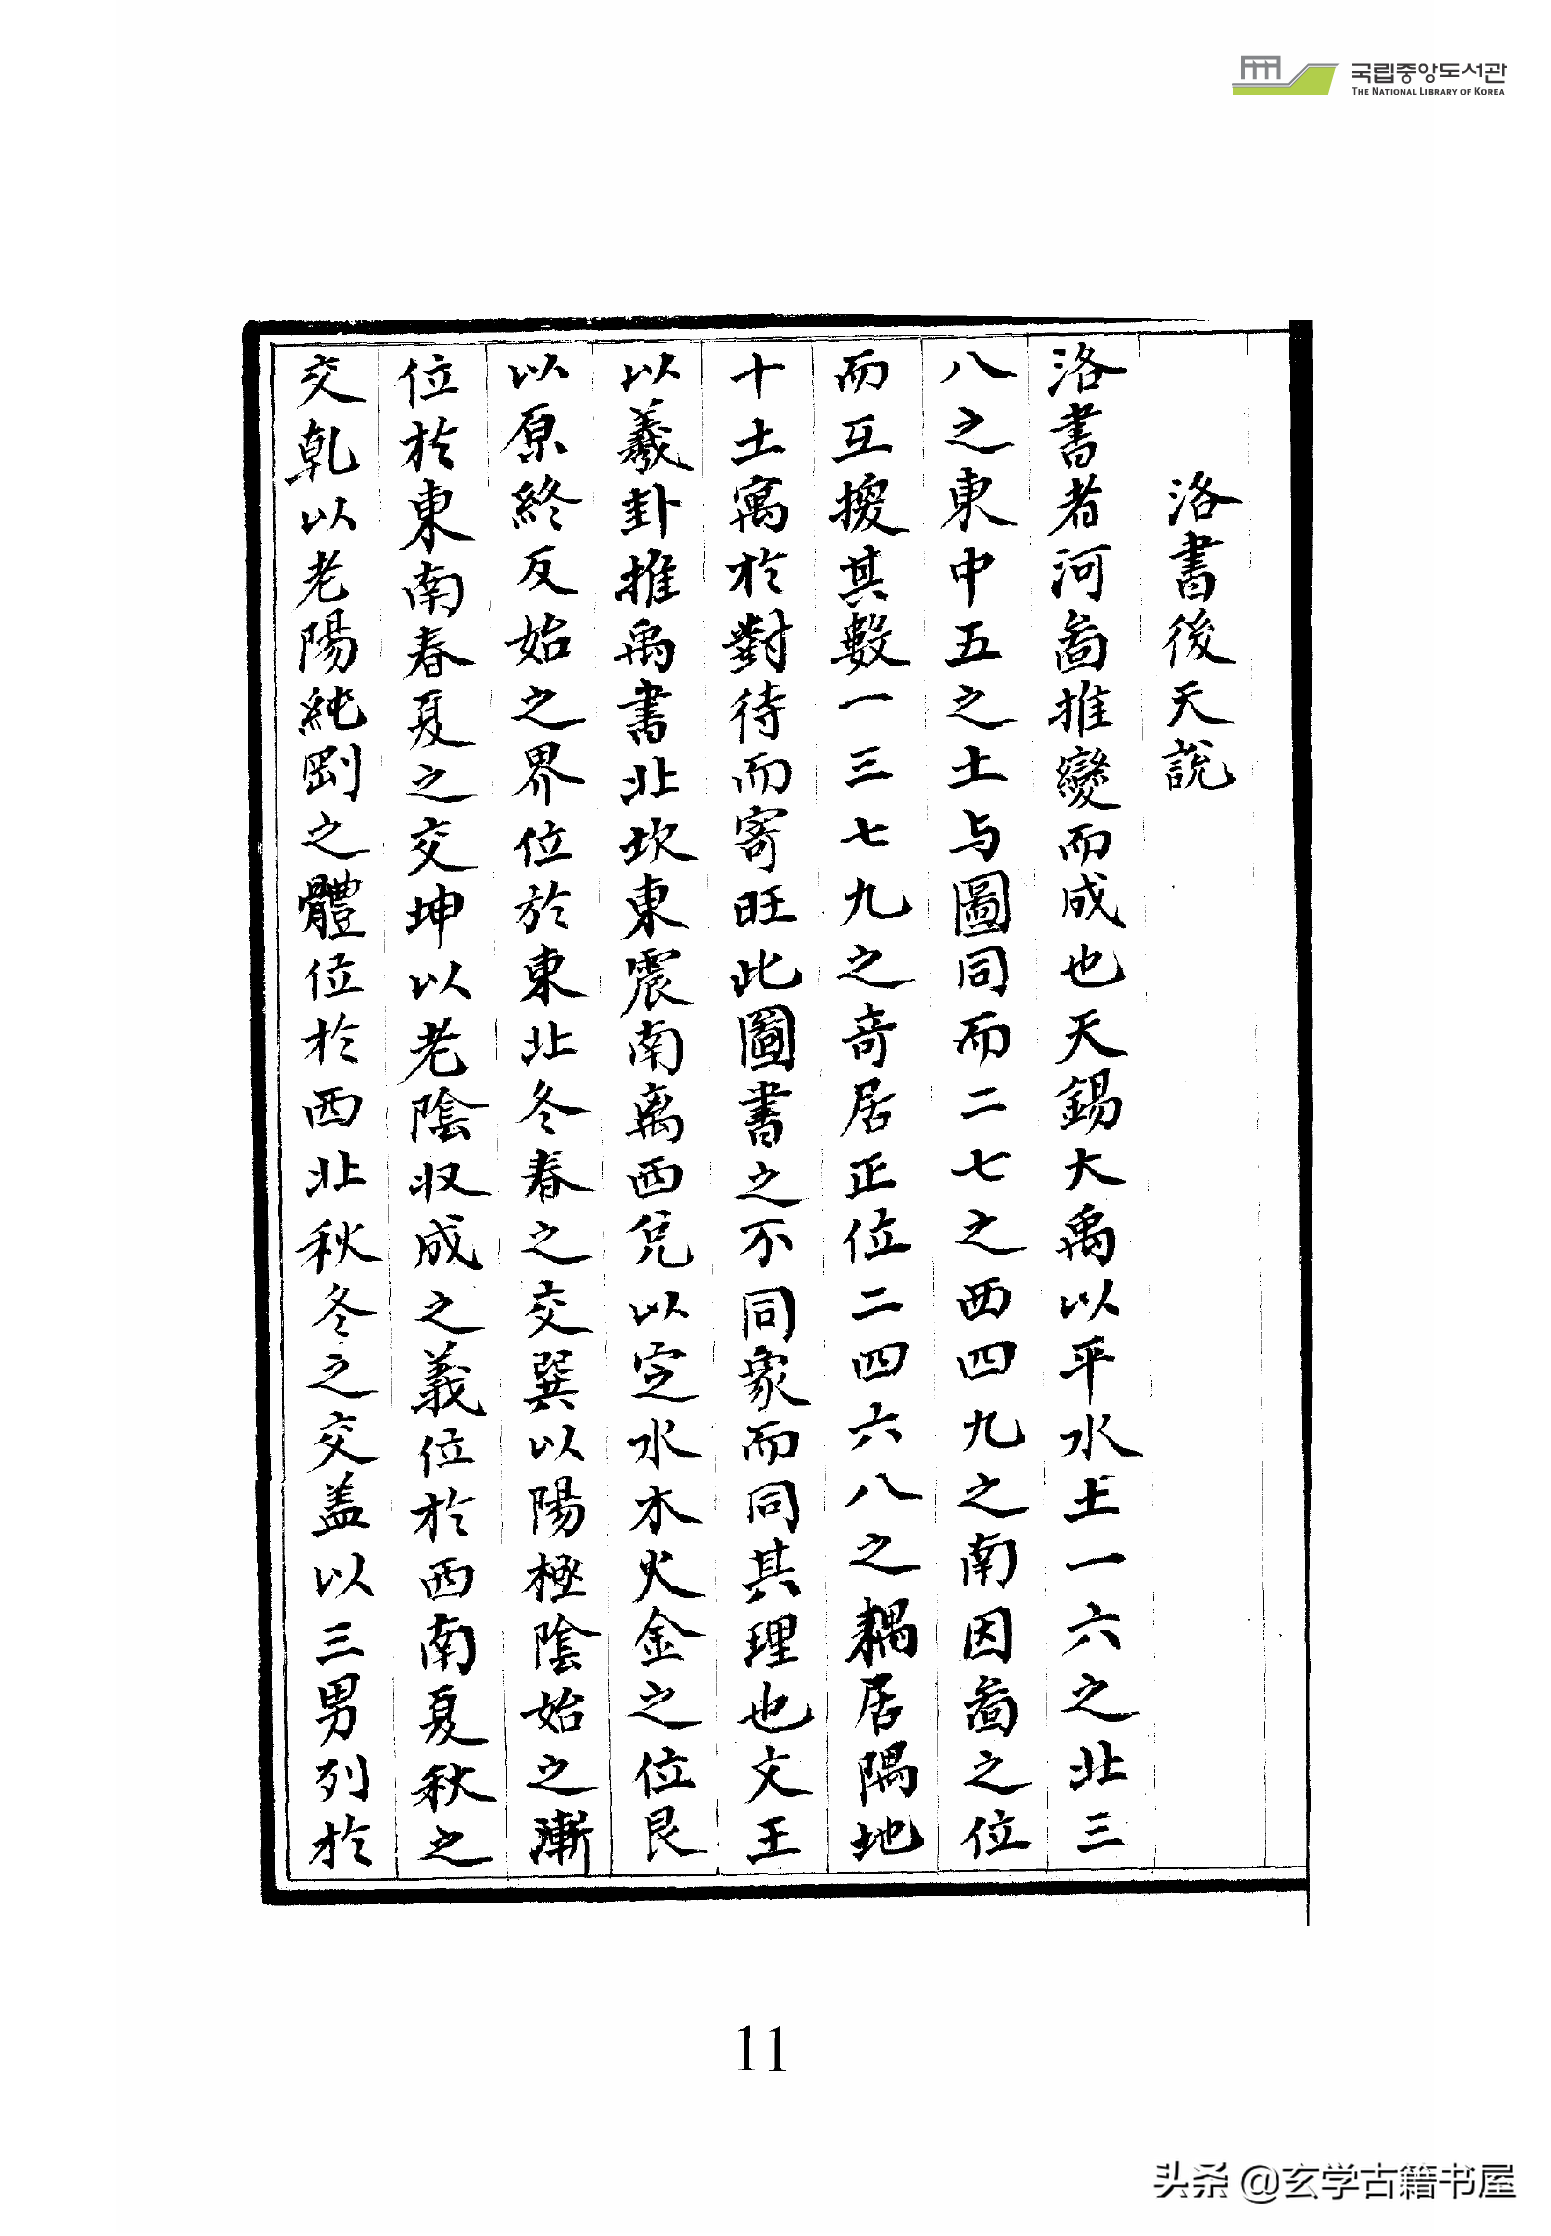 국립중앙도서관
THE NATIONAL LIBRARY OF KOREA
洛書後天說
洛書者河啚推變而成也天錫大禹以平水土一六之北三
八之東中五之土与圖同而二七之西四九之南因啚之位
而互換其數一三七九之奇居正位二四六八之耦居隅地
十土寓於對待而寄旺此圖書之不同象而同其理也文王
以羲卦推禹書北坎東震南离西兌以定水木火金之位艮
以原終反始之界位於東北冬春之交巽以陽極陰始之漸
位於東南春夏之交坤以老陰収成之義位於西南夏秋之
交乾以老陽純剛之體位於西北秋冬之交盖以三男列於
11
头条 @玄学古籍书屋